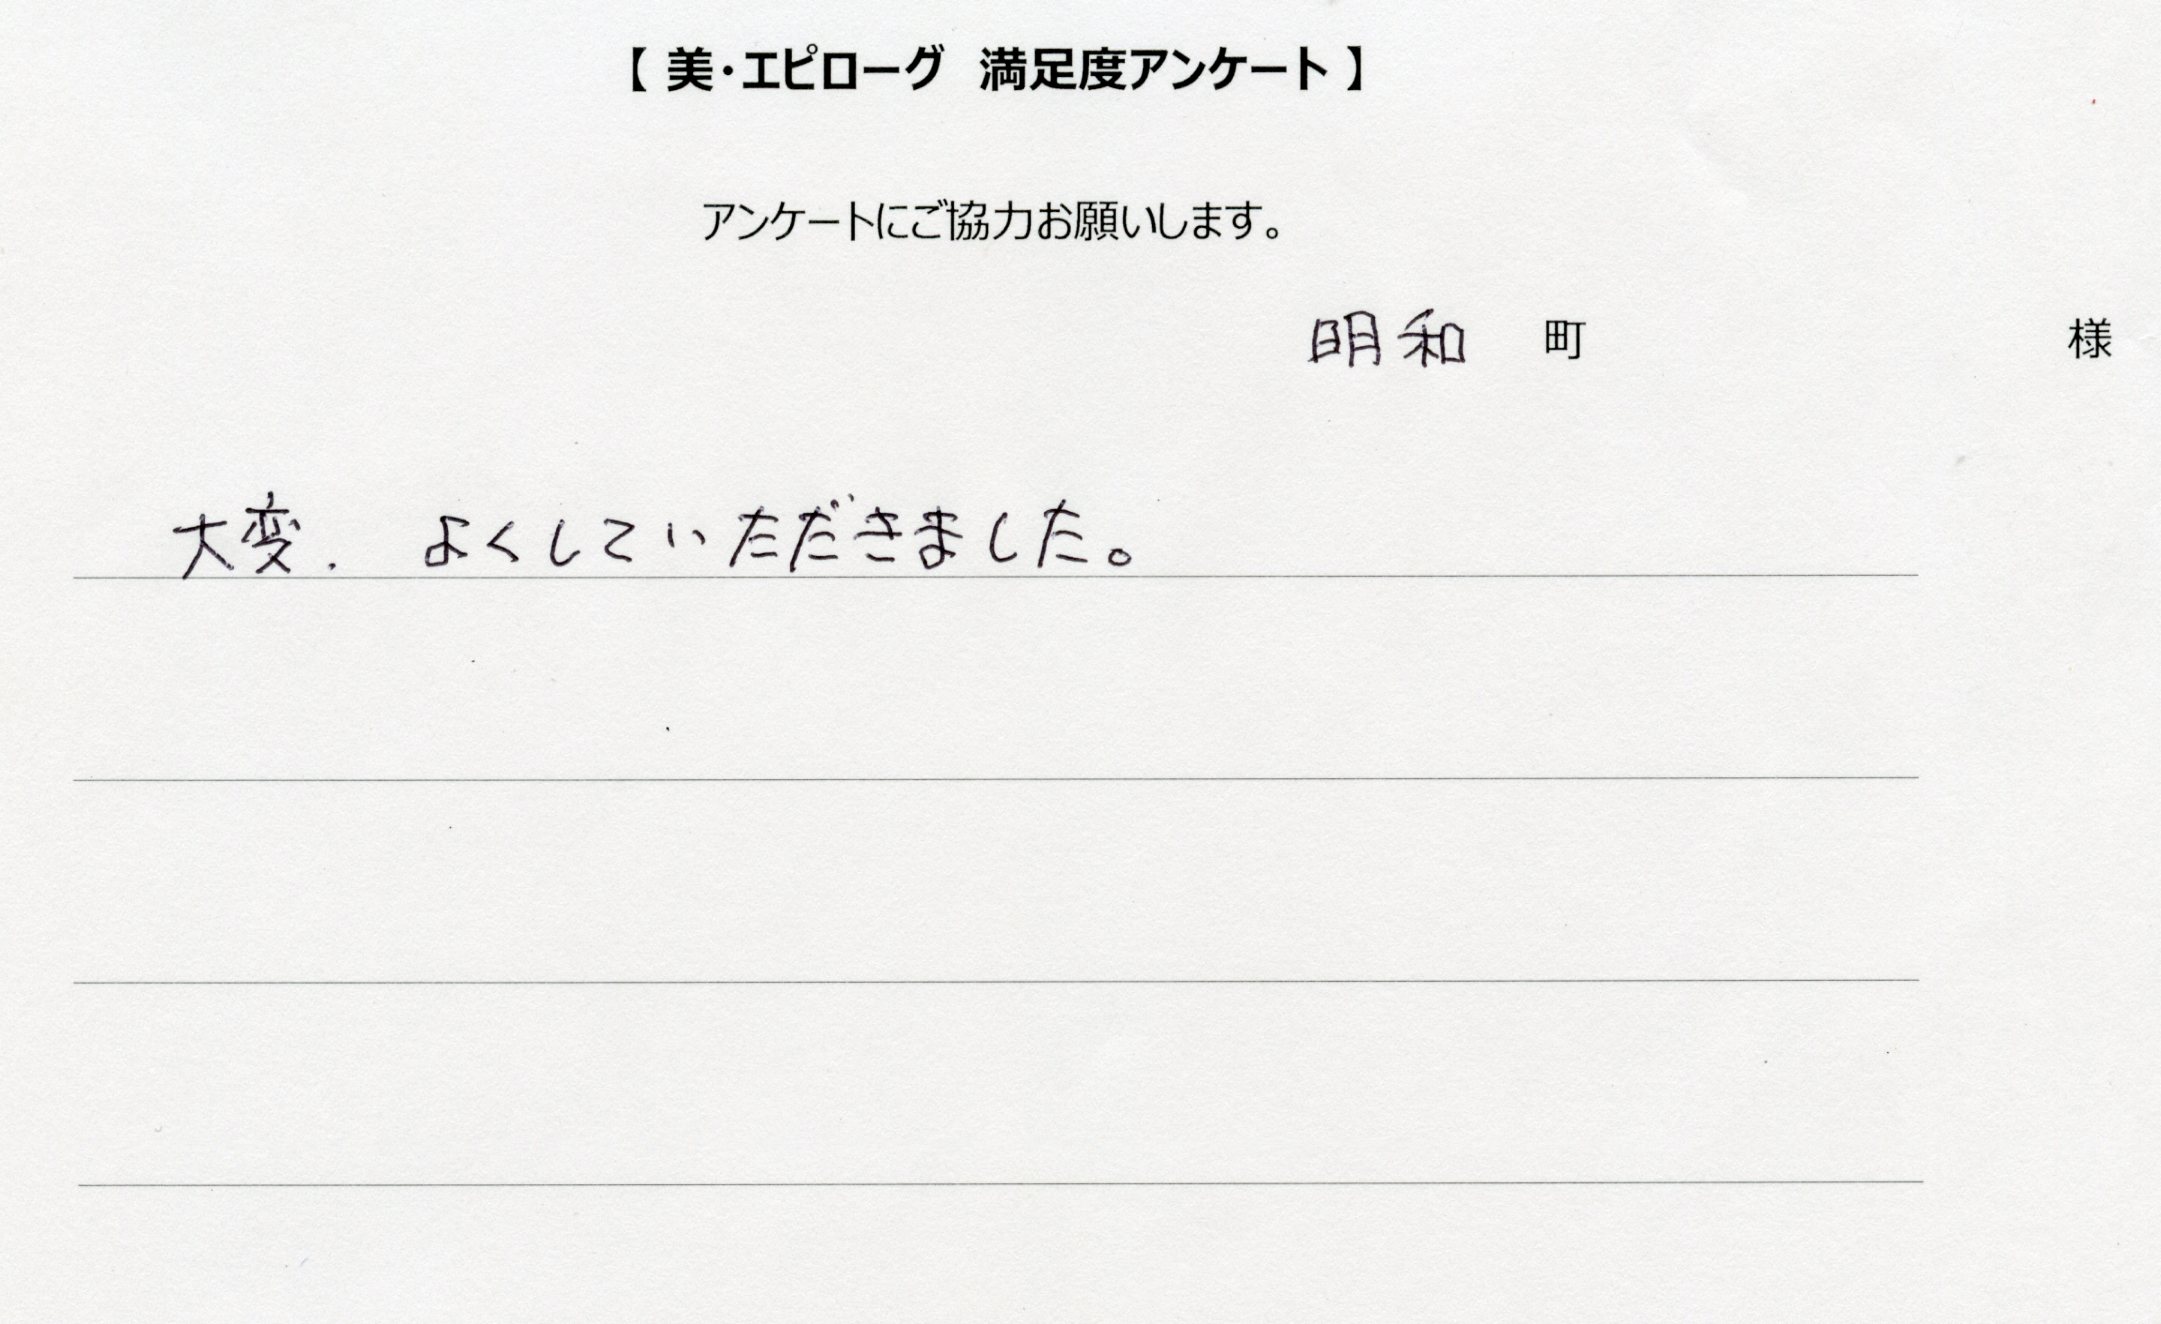 【 美・エピローグ 満足度アンケート 】
アンケートにご協力お願いします。
明和 町 様
大変. よくしていただきました。